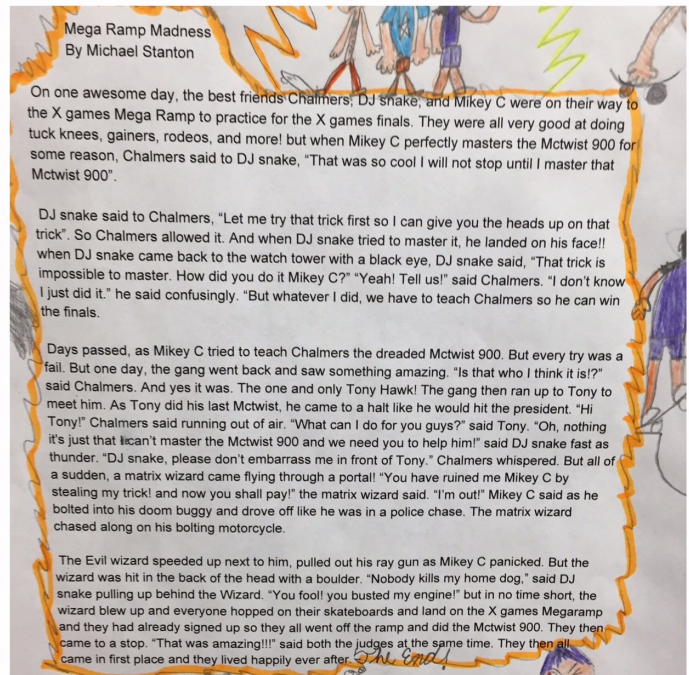 Mega Ramp Madness
By Michael Stanton
On one awesome day, the best friends Chalmers, DJ snake, and Mikey C were on their way to
the X games Mega Ramp to practice for the X games finals. They were all very good at doing
tuck knees, gainers, rodeos, and more! but when Mikey C perfectly masters the Mctwist 900 for
some reason, Chalmers said to DJ snake, “That was so cool I will not stop until I master that
Mctwist 900”.
DJ snake said to Chalmers, “Let me try that trick first so I can give you the heads up on that
trick”. So Chalmers allowed it. And when DJ snake tried to master it, he landed on his face!!
when DJ snake came back to the watch tower with a black eye, DJ snake said, “That trick is
impossible to master. How did you do it Mikey C?” “Yeah! Tell us!” said Chalmers. “I don't know
I just did it.” he said confusingly. “But whatever I did, we have to teach Chalmers so he can win
the finals.
Days passed, as Mikey C tried to teach Chalmers the dreaded Mctwist 900. But every try was a
fail. But one day, the gang went back and saw something amazing. “Is that who I think it is!?”
said Chalmers. And yes it was. The one and only Tony Hawk! The gang then ran up to Tony to
meet him. As Tony did his last Mctwist, he came to a halt like he would hit the president. “Hi
Tony!” Chalmers said running out of air. “What can I do for you guys?” said Tony. “Oh, nothing
it's just that can't master the Mctwist 900 and we need you to help him!” said DJ snake fast as
thunder. “DJ snake, please don't embarrass me in front of Tony.” Chalmers whispered. But all of
a sudden, a matrix wizard came flying through a portal! “You have ruined me Mikey C by
stealing my trick! and now you shall pay!” the matrix wizard said. “I'm out!” Mikey C said as he
bolted into his doom buggy and drove off like he was in a police chase. The matrix wizard
chased along on his bolting motorcycle.
The Evil wizard speeded up next to him, pulled out his ray gun as Mikey C panicked. But the
wizard was hit in the back of the head with a boulder. “Nobody kills my home dog,” said DJ
snake pulling up behind the Wizard. “You fool! you busted my engine!” but in no time short, the
wizard blew up and everyone hopped on their skateboards and land on the X games Megaramp
and they had already signed up so they all went off the ramp and did the Mctwist 900. They then
came to a stop. “That was amazing!!!” said both the judges at the same time. They then all
came in first place and they lived happily ever after. The End!